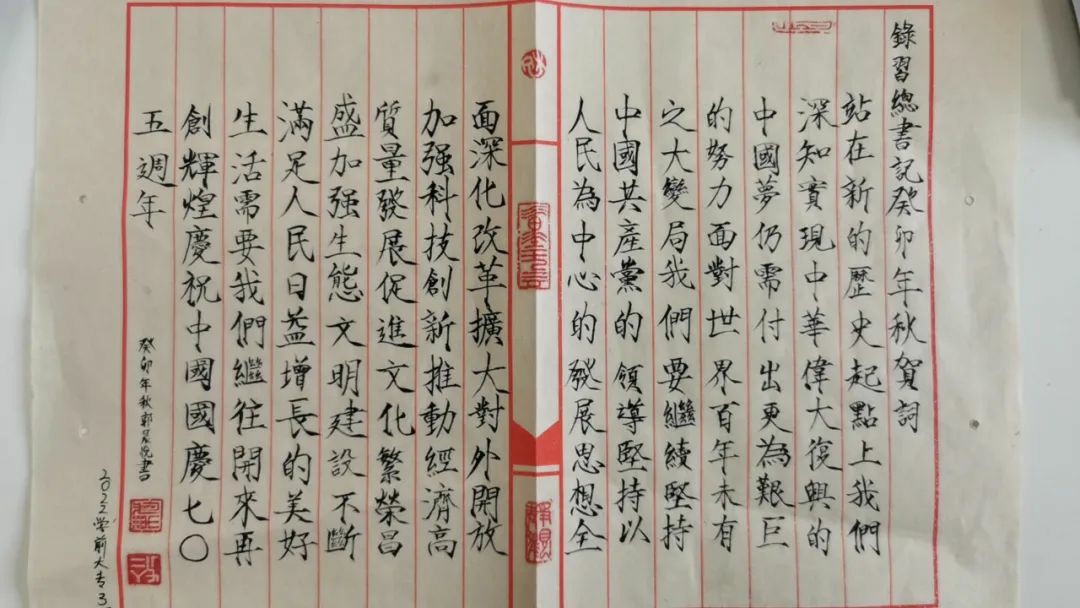 錄習總書記癸卯年秋賀詞
站在新的歷史起點上我們
深知實現中華偉大復興的
中國夢仍需付出更為艱巨
的努力面對世界百年未有
之大變局我們要繼續堅持
中國共產黨的領導堅持以
人民為中心的發展思想全
面深化改革擴大對外開放
加强科技創新推動經濟高
質量發展促進文化繁榮昌
盛加强生態文明建設不斷
滿足人民日益增長的美好
生活需要我們繼往開來再
創輝煌慶祝中國國慶七〇
五週年
癸卯年秋郭晨悅書
2022学前大专3